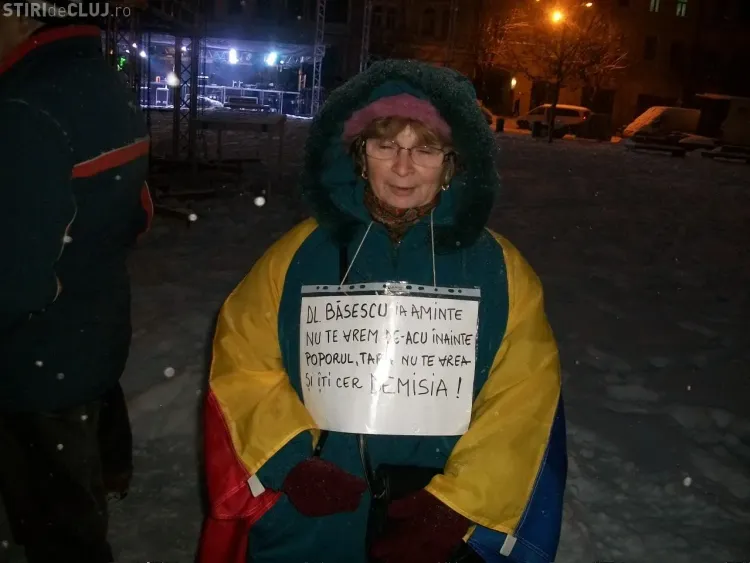 STIRIdeCLUJ.ro
DL BĂSESCU IA AMINTE
NU TE VREM DE-ACU ÎNAINTE
POPORUL, NU TE VREA
ȘI ÎȚI CER DEMISIA !